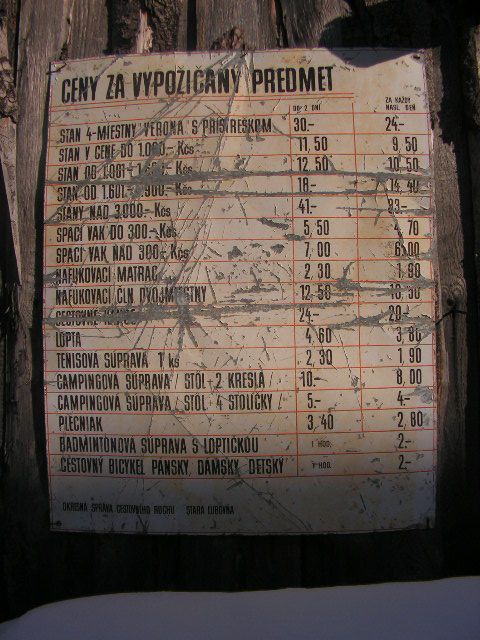 CENY ZA VYPOŽIČANÝ PREDMET
DO 2 DNÍ ZA KAŽDÝ NASL. DEŇ
STAN 4-MIESTNY VERONA S PRÍSTREŠKOM 30.- 24.-
STAN V CENE DO 1.000.- Kčs 11,50 9,50
STAN OD Kčs 12,50 10,50
STAN OD 1.601.- Kčs 18.- 14,40
STANY NAD 3.000.- Kčs 41.- 33.-
SPACÍ VAK DO 300.- Kčs 5,50 4,70
SPACÍ VAK NAD 300.- Kčs 7,00 6,00
NAFUKOVACÍ MATRAC 2,30 1,90
NAFUKOVACÍ ČLN DVOJMIESTNY 12,50
24.- 20.-
LOPTA 4,60
TENISOVÁ SÚPRAVA 1 ks 2,30 1,90
CAMPINGOVÁ SÚPRAVA / STÔL + 2 KRESLÁ / 10.- 8,00
CAMPINGOVÁ SÚPRAVA / STÔL + 4 STOLIČKY / 5.- 4.-
PLECNIAK 3,40 2,80
BADMINTONOVÁ SÚPRAVA S LOPTIČKOU 1 HOD. 2.-
CESTOVNÝ BICYKEL PÁNSKY, DÁMSKY, DETSKÝ 1 HOD. 2.-
OKRESNÁ SPRÁVA CESTOVNÉHO RUCHU STARÁ ĽUBOVŇA